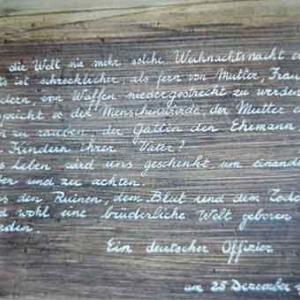 die Welt nie mehr solche Weihnachtsnacht
ist schrecklicher, als fern von Mutter, Frau
von Waffen niedergestreckt zu werden
es der Menschenwürde, der Mutter
zu rauben, der Gattin den Ehemann
Kindern ihrer Vater?
Leben wird uns geschenkt um einand
und zu achten...
den Ruinen, dem Blut und dem Tode
wohl eine brüderliche Welt geboren
Ein deutscher Offizier
am 25 Dezember